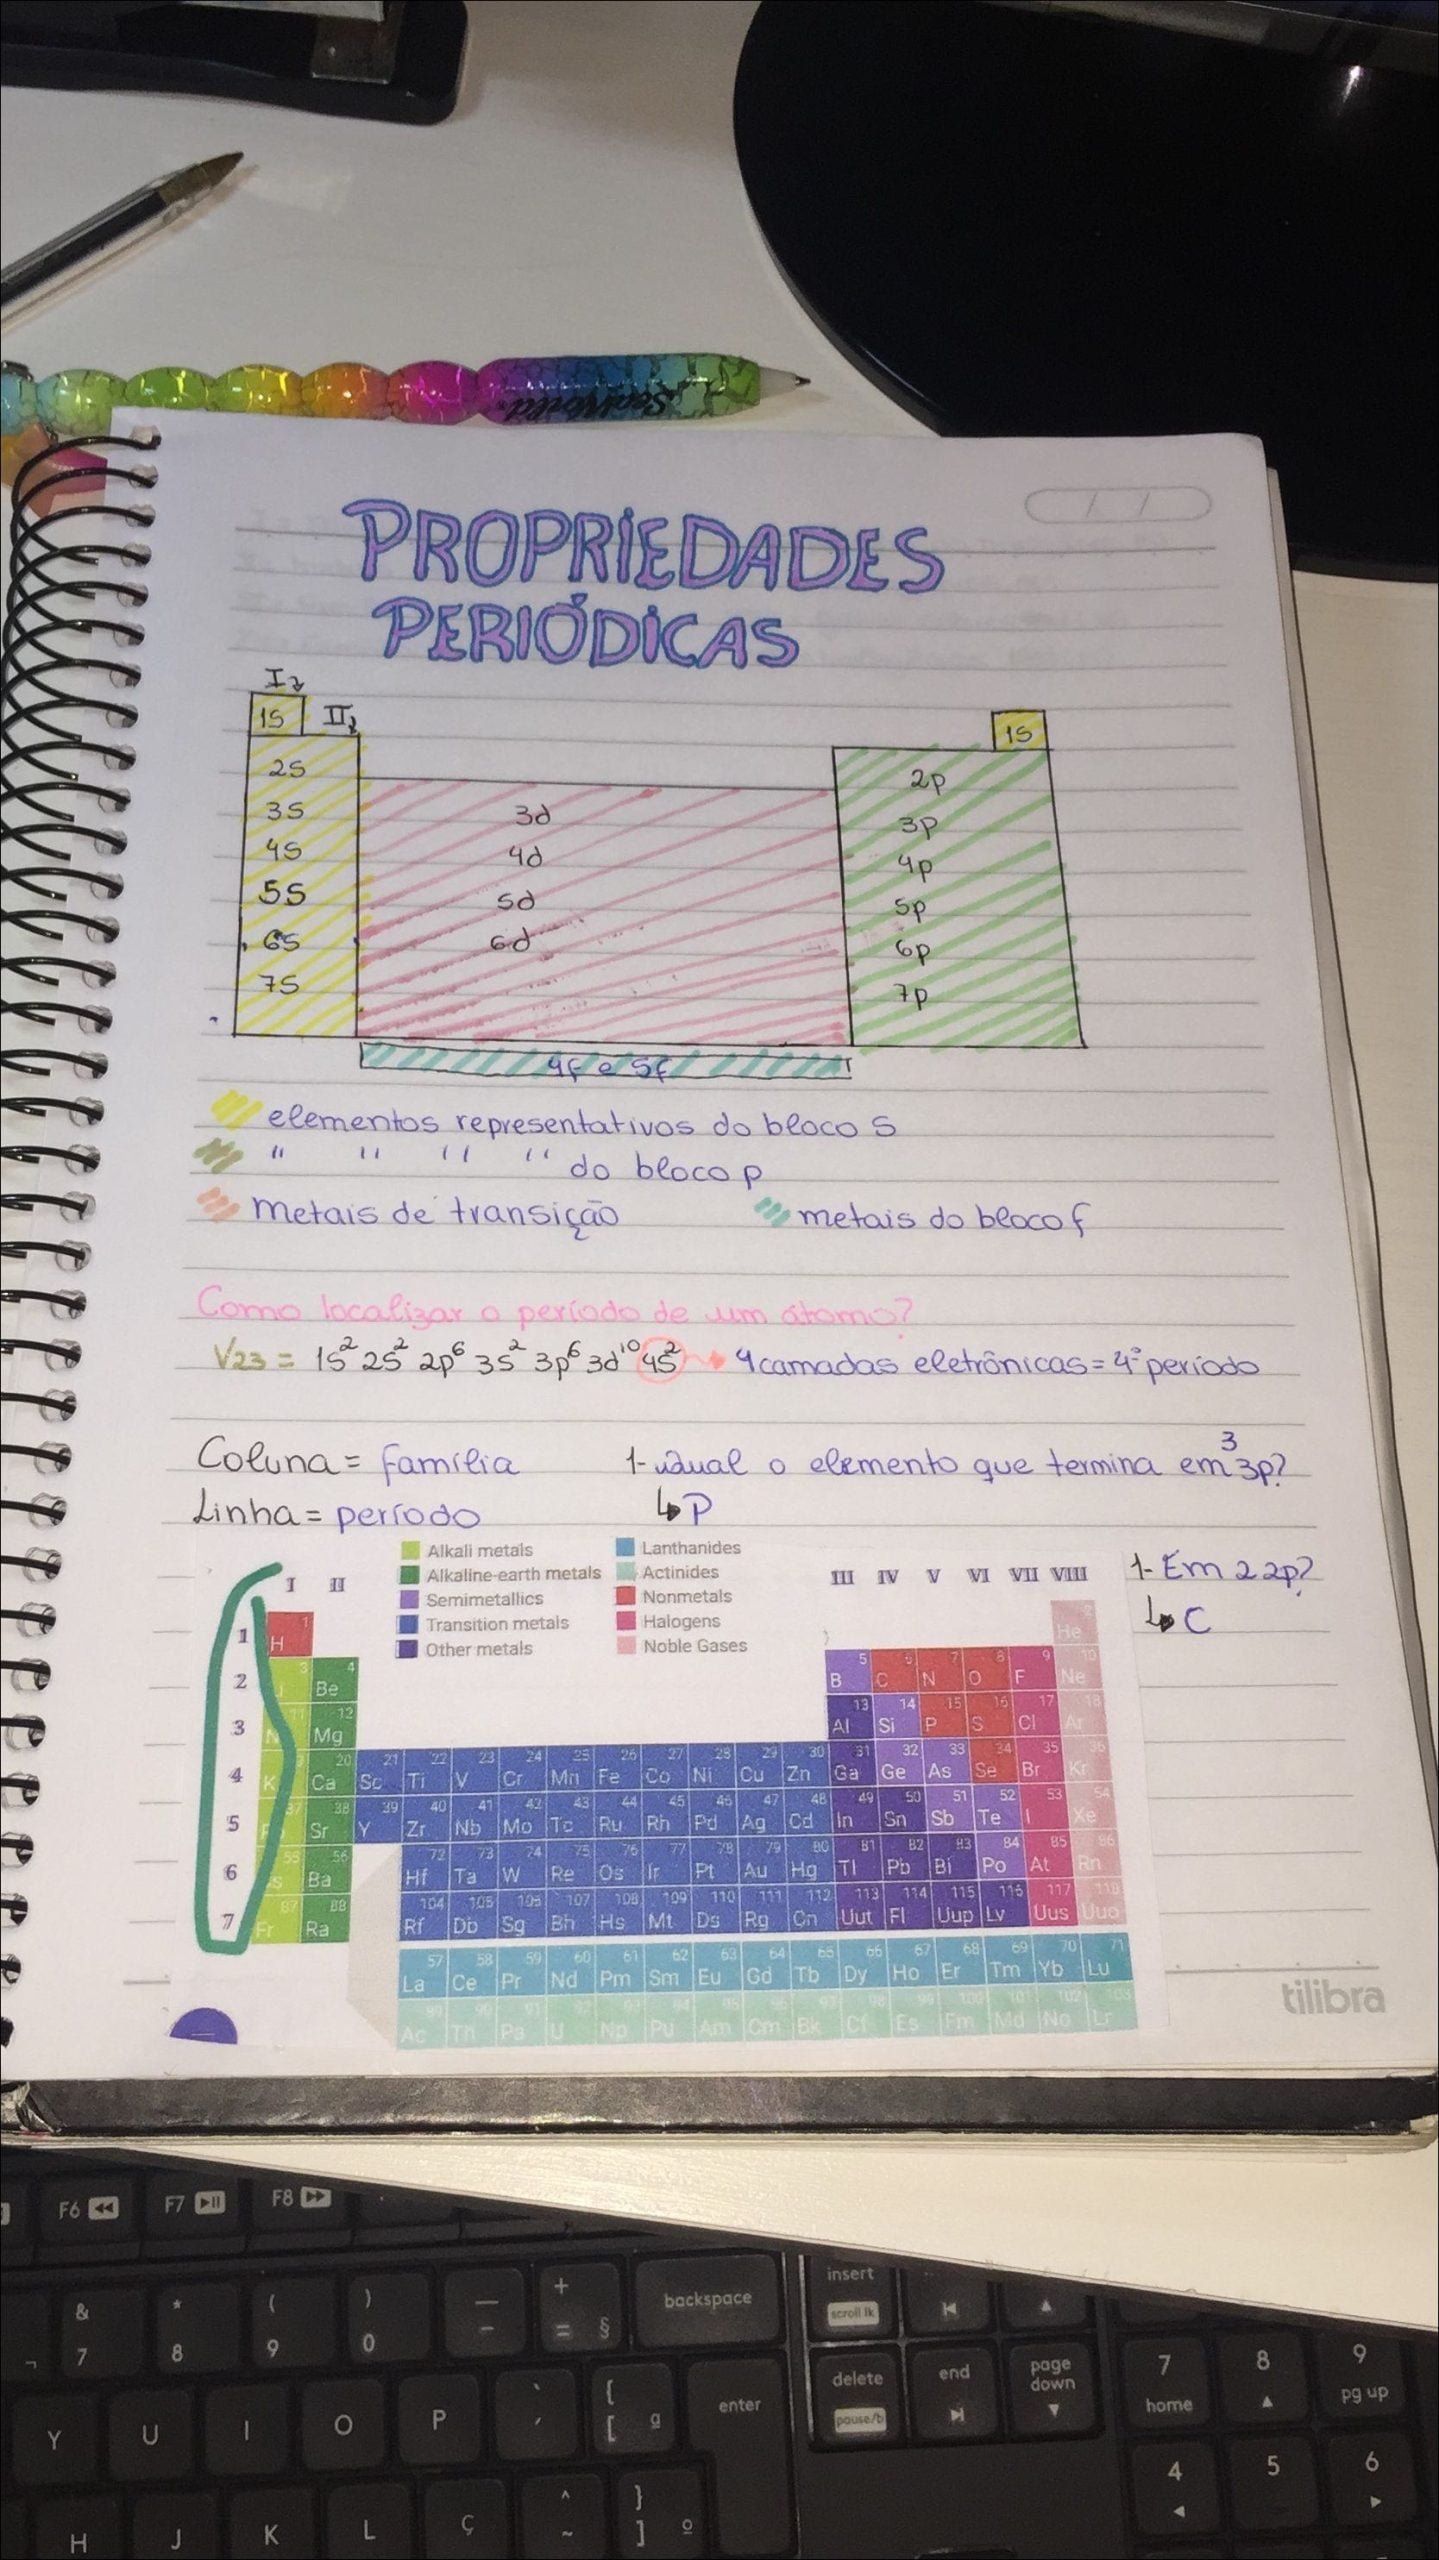 SeaWorld
PROPRIEDADES
PERIÓDICAS
I
1S II 1S
2S 2p
3S 3d 3p
4S 4d 4p
5S 5d 5p
6S 6d 6p
7S 7p
4f e 5f
elementos representativos do bloco S
" " " " do bloco p
metais de transição metais do bloco f
Como localizar o período de um átomo?
V23 = 1S² 2S² 2p⁶ 3S² 3p⁶ 3d¹⁰ 4S² 4 camadas eletrônicas = 4º período
Coluna = família 1- Qual o elemento que termina em ³3p?
Linha = período ↳ P
Alkali metals Lanthanides
Alkaline-earth metals Actinides
Semimetallics Nonmetals
Transition metals Halogens
Other metals Noble Gases
I II III IV V VI VII VIII
1- Em 2 2p?
↳ C
1 H 1 He
2 3 4 Be 5 B 6 C 7 N 8 O 9 F 10 Ne
3 11 N 12 Mg 13 Al 14 Si 15 P 16 S 17 Cl 18 Ar
4 K 20 Ca 21 Sc 22 Ti 23 V 24 Cr 25 Mn 26 Fe 27 Co 28 Ni 29 Cu 30 Zn 31 Ga 32 Ge 33 As 34 Se 35 Br 36 Kr
5 37 38 Sr 39 Y 40 Zr 41 Nb 42 Mo 43 Tc 44 Ru 45 Rh 46 Pd 47 Ag 48 Cd 49 In 50 Sn 51 Sb 52 Te 53 I 54 Xe
6 55 s 56 Ba 72 Hf 73 Ta 74 W 75 Re 76 Os 77 Ir 78 Pt 79 Au 80 Hg 81 Tl 82 Pb 83 Bi 84 Po 85 At 86 Rn
7 87 Fr 88 Ra 104 Rf 105 Db 106 Sg 107 Bh 108 Hs 109 Mt 110 Ds 111 Rg 112 Cn 113 Uut 114 Fl 115 Uup 116 Lv 117 Uus 118 Uuo
57 La 58 Ce 59 Pr 60 Nd 61 Pm 62 Sm 63 Eu 64 Gd 65 Tb 66 Dy 67 Ho 68 Er 69 Tm 70 Yb 71 Lu
89 Ac 90 Th 91 Pa 92 U 93 Np 94 Pu 95 Am 96 Cm 97 Bk 98 Cf 99 Es 100 Fm 101 Md 102 No 103 Lr
tilibra
F6 F7 F8
insert
scroll lk
& * ( ) — + backspace
7 8 9 0 - = §
delete end page down 7 8 9
pause/b home pg up
Y U I O P ` ´ { [ ª enter
4 5 6
H J K L Ç ^ ~ } ] º